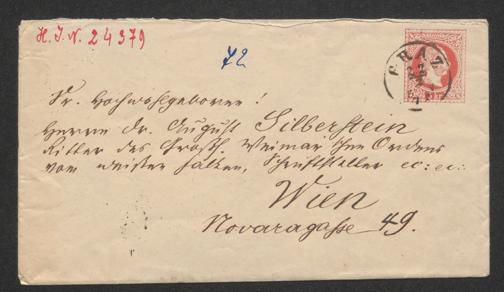 H. I. N. 24379
72
GRAZ
Sr. Hochwohlgeboren!
Herrn Dr. August Silberstein
Ritter des Großh. Weimar'schen Ordens
vom weißen Falken, Schriftsteller etc: etc:
Wien
Novaragasse 49.